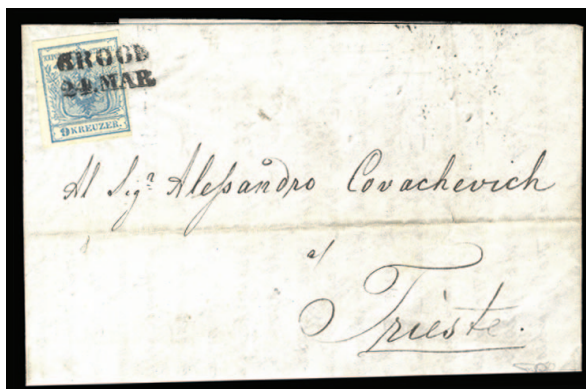 24 MAR
9 KREUZER.
Al Sigr. Alessandro Covachevich
a/
Trieste.